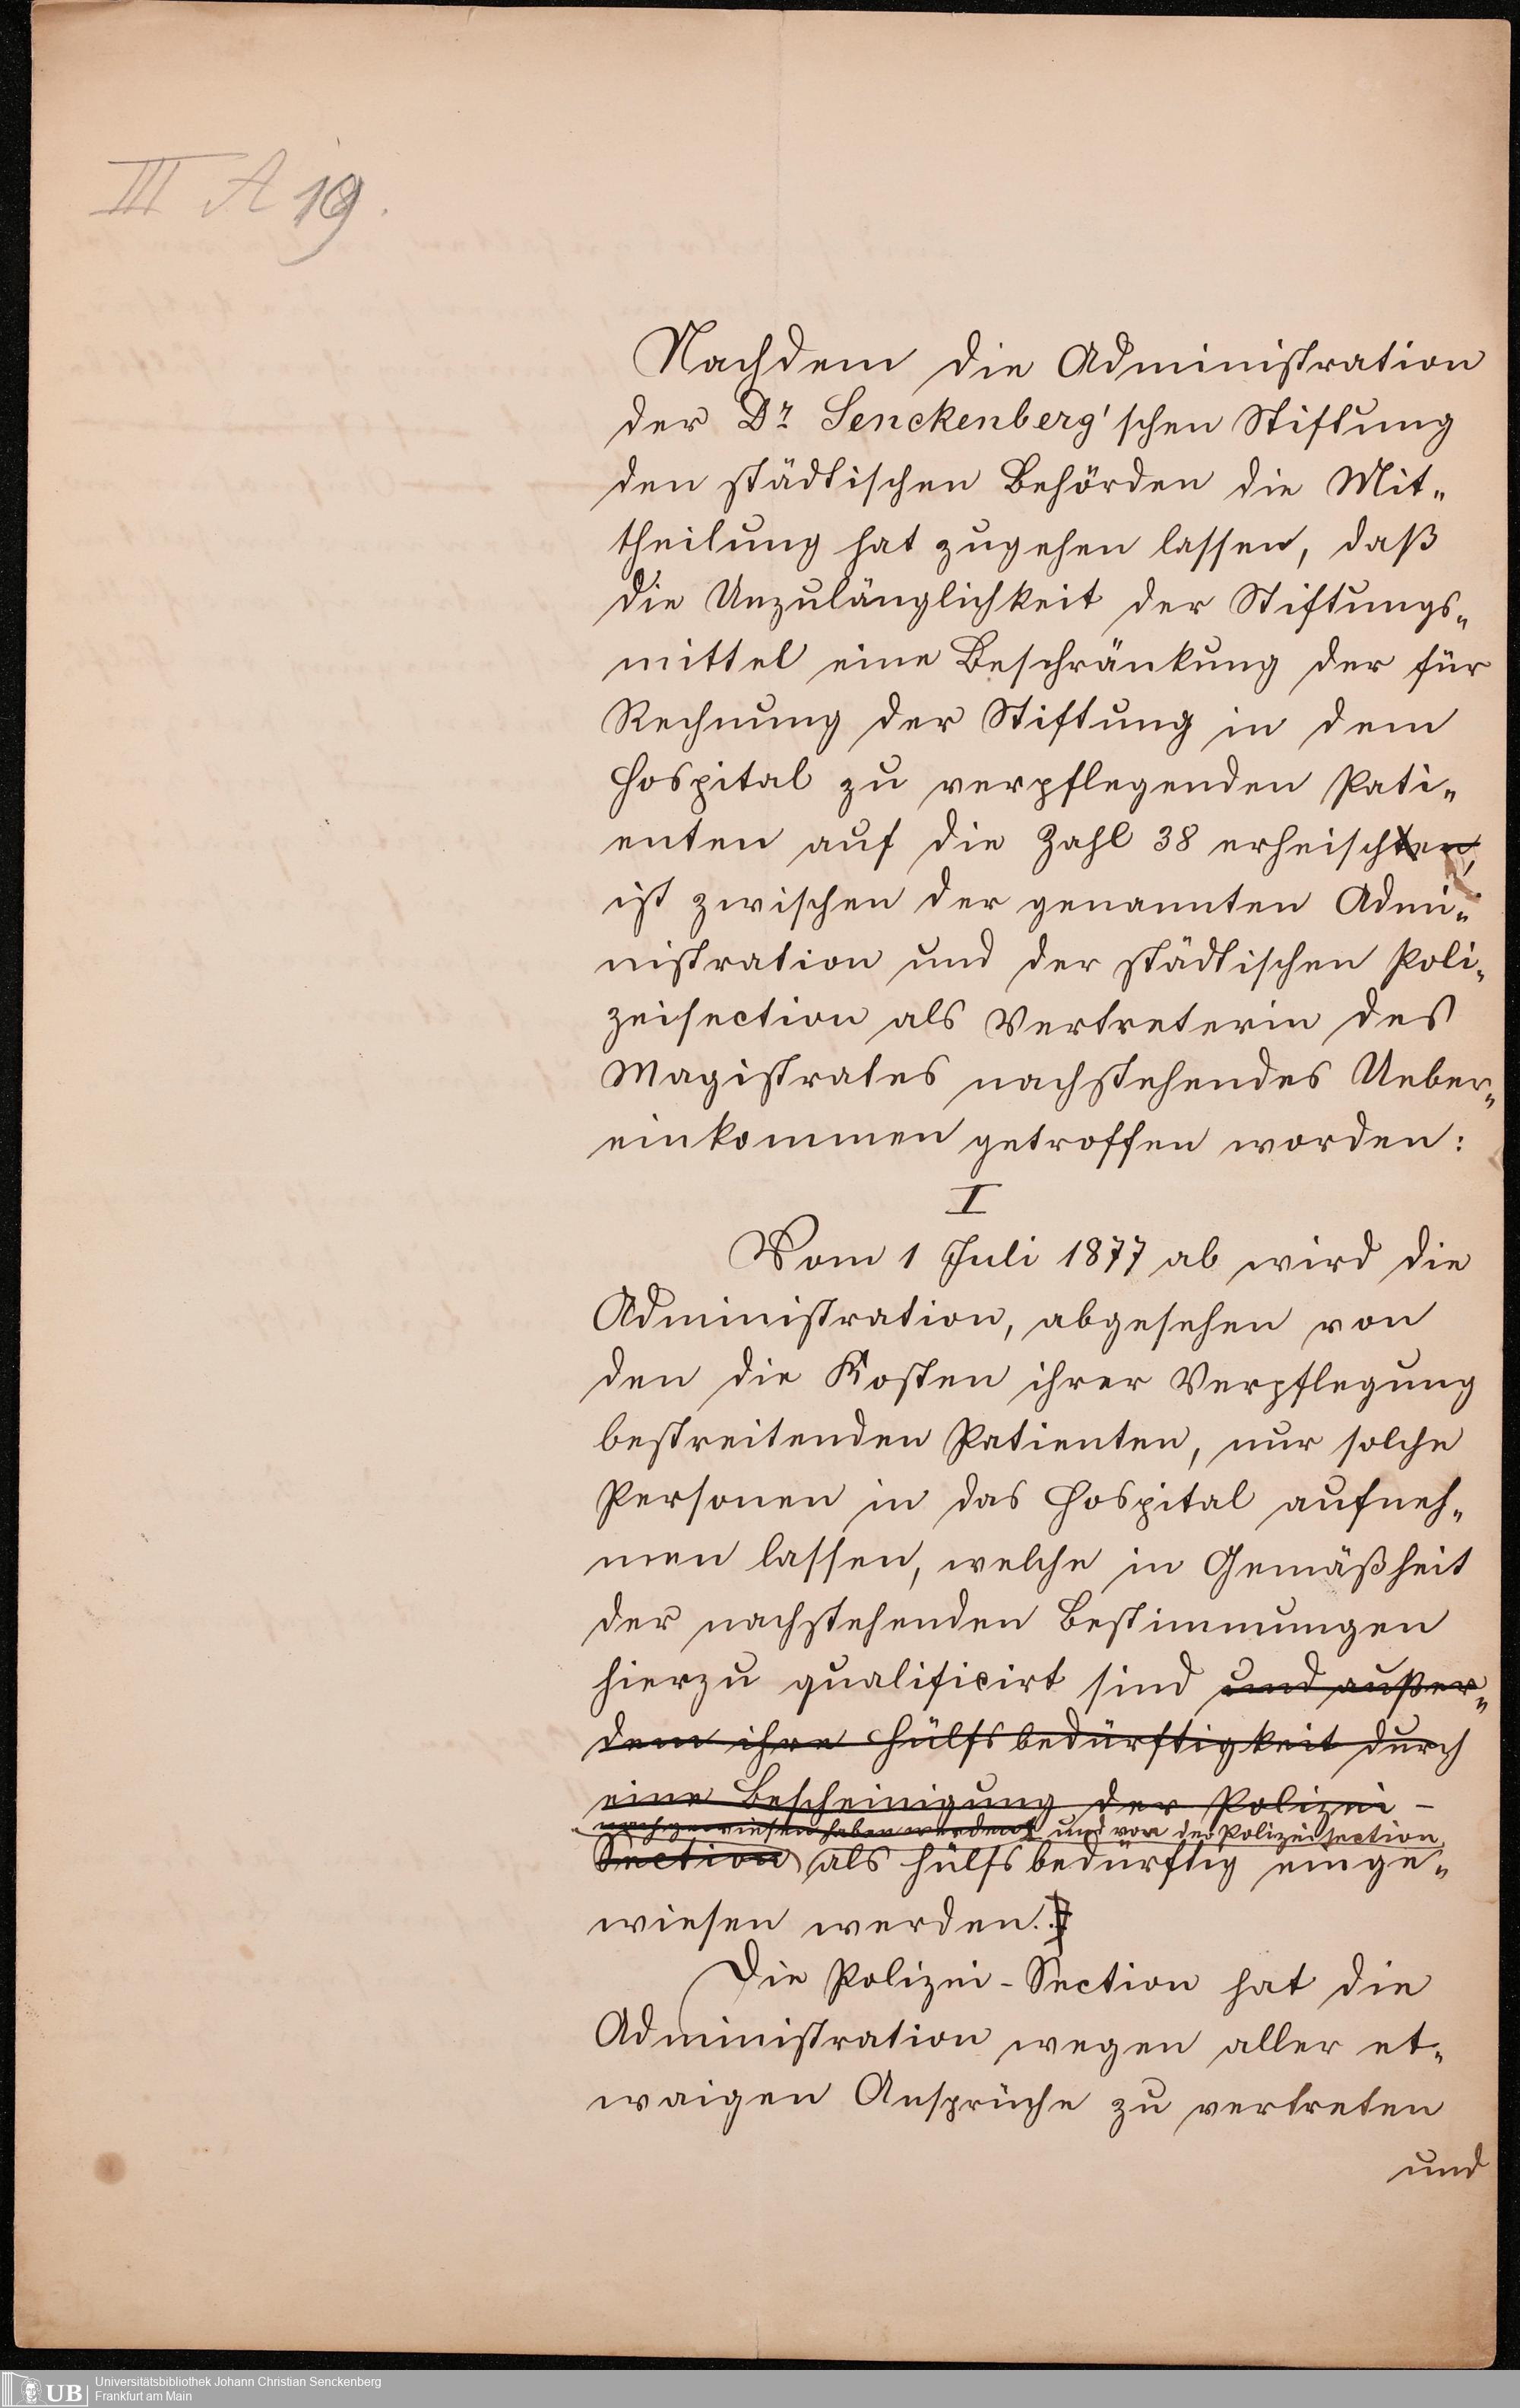 III A 19.
Nachdem die Administration
der Dr. Senckenberg'schen Stiftung
den städtischen Behörden die Mit-
theilung hat zugehen lassen, daß
die Unzulänglichkeit der Stiftungs-
mittel eine Beschränkung der für
Rechnung der Stiftung in dem
Hospital zu verpflegenden Pati-
enten auf die Zahl 38 erheischten,
ist zwischen der genannten Admi-
nistration und der städtischen Poli-
zeisection als Vertreterin des
Magistrates nachstehendes Ueber-
einkommen getroffen worden:
I
Vom 1 Juli 1877 ab wird die
Administration, abgesehen von
den die Kosten ihrer Verpflegung
bestreitenden Patienten, nur solche
Personen in das Hospital aufneh-
men lassen, welche in Gemäßheit
der nachstehenden Bestimmungen
hierzu qualificirt sind und außer-
dem ihre Hülfsbedürftigkeit durch
eine Bescheinigung der Polizei-
nachgewiesen haben werden und von der Polizeisection
Section als hülfsbedürftig einge-
wiesen werden.
Die Polizei-Section hat die
Administration wegen aller et-
waigen Ansprüche zu vertreten
und
UB
Universitätsbibliothek Johann Christian Senckenberg
Frankfurt am Main